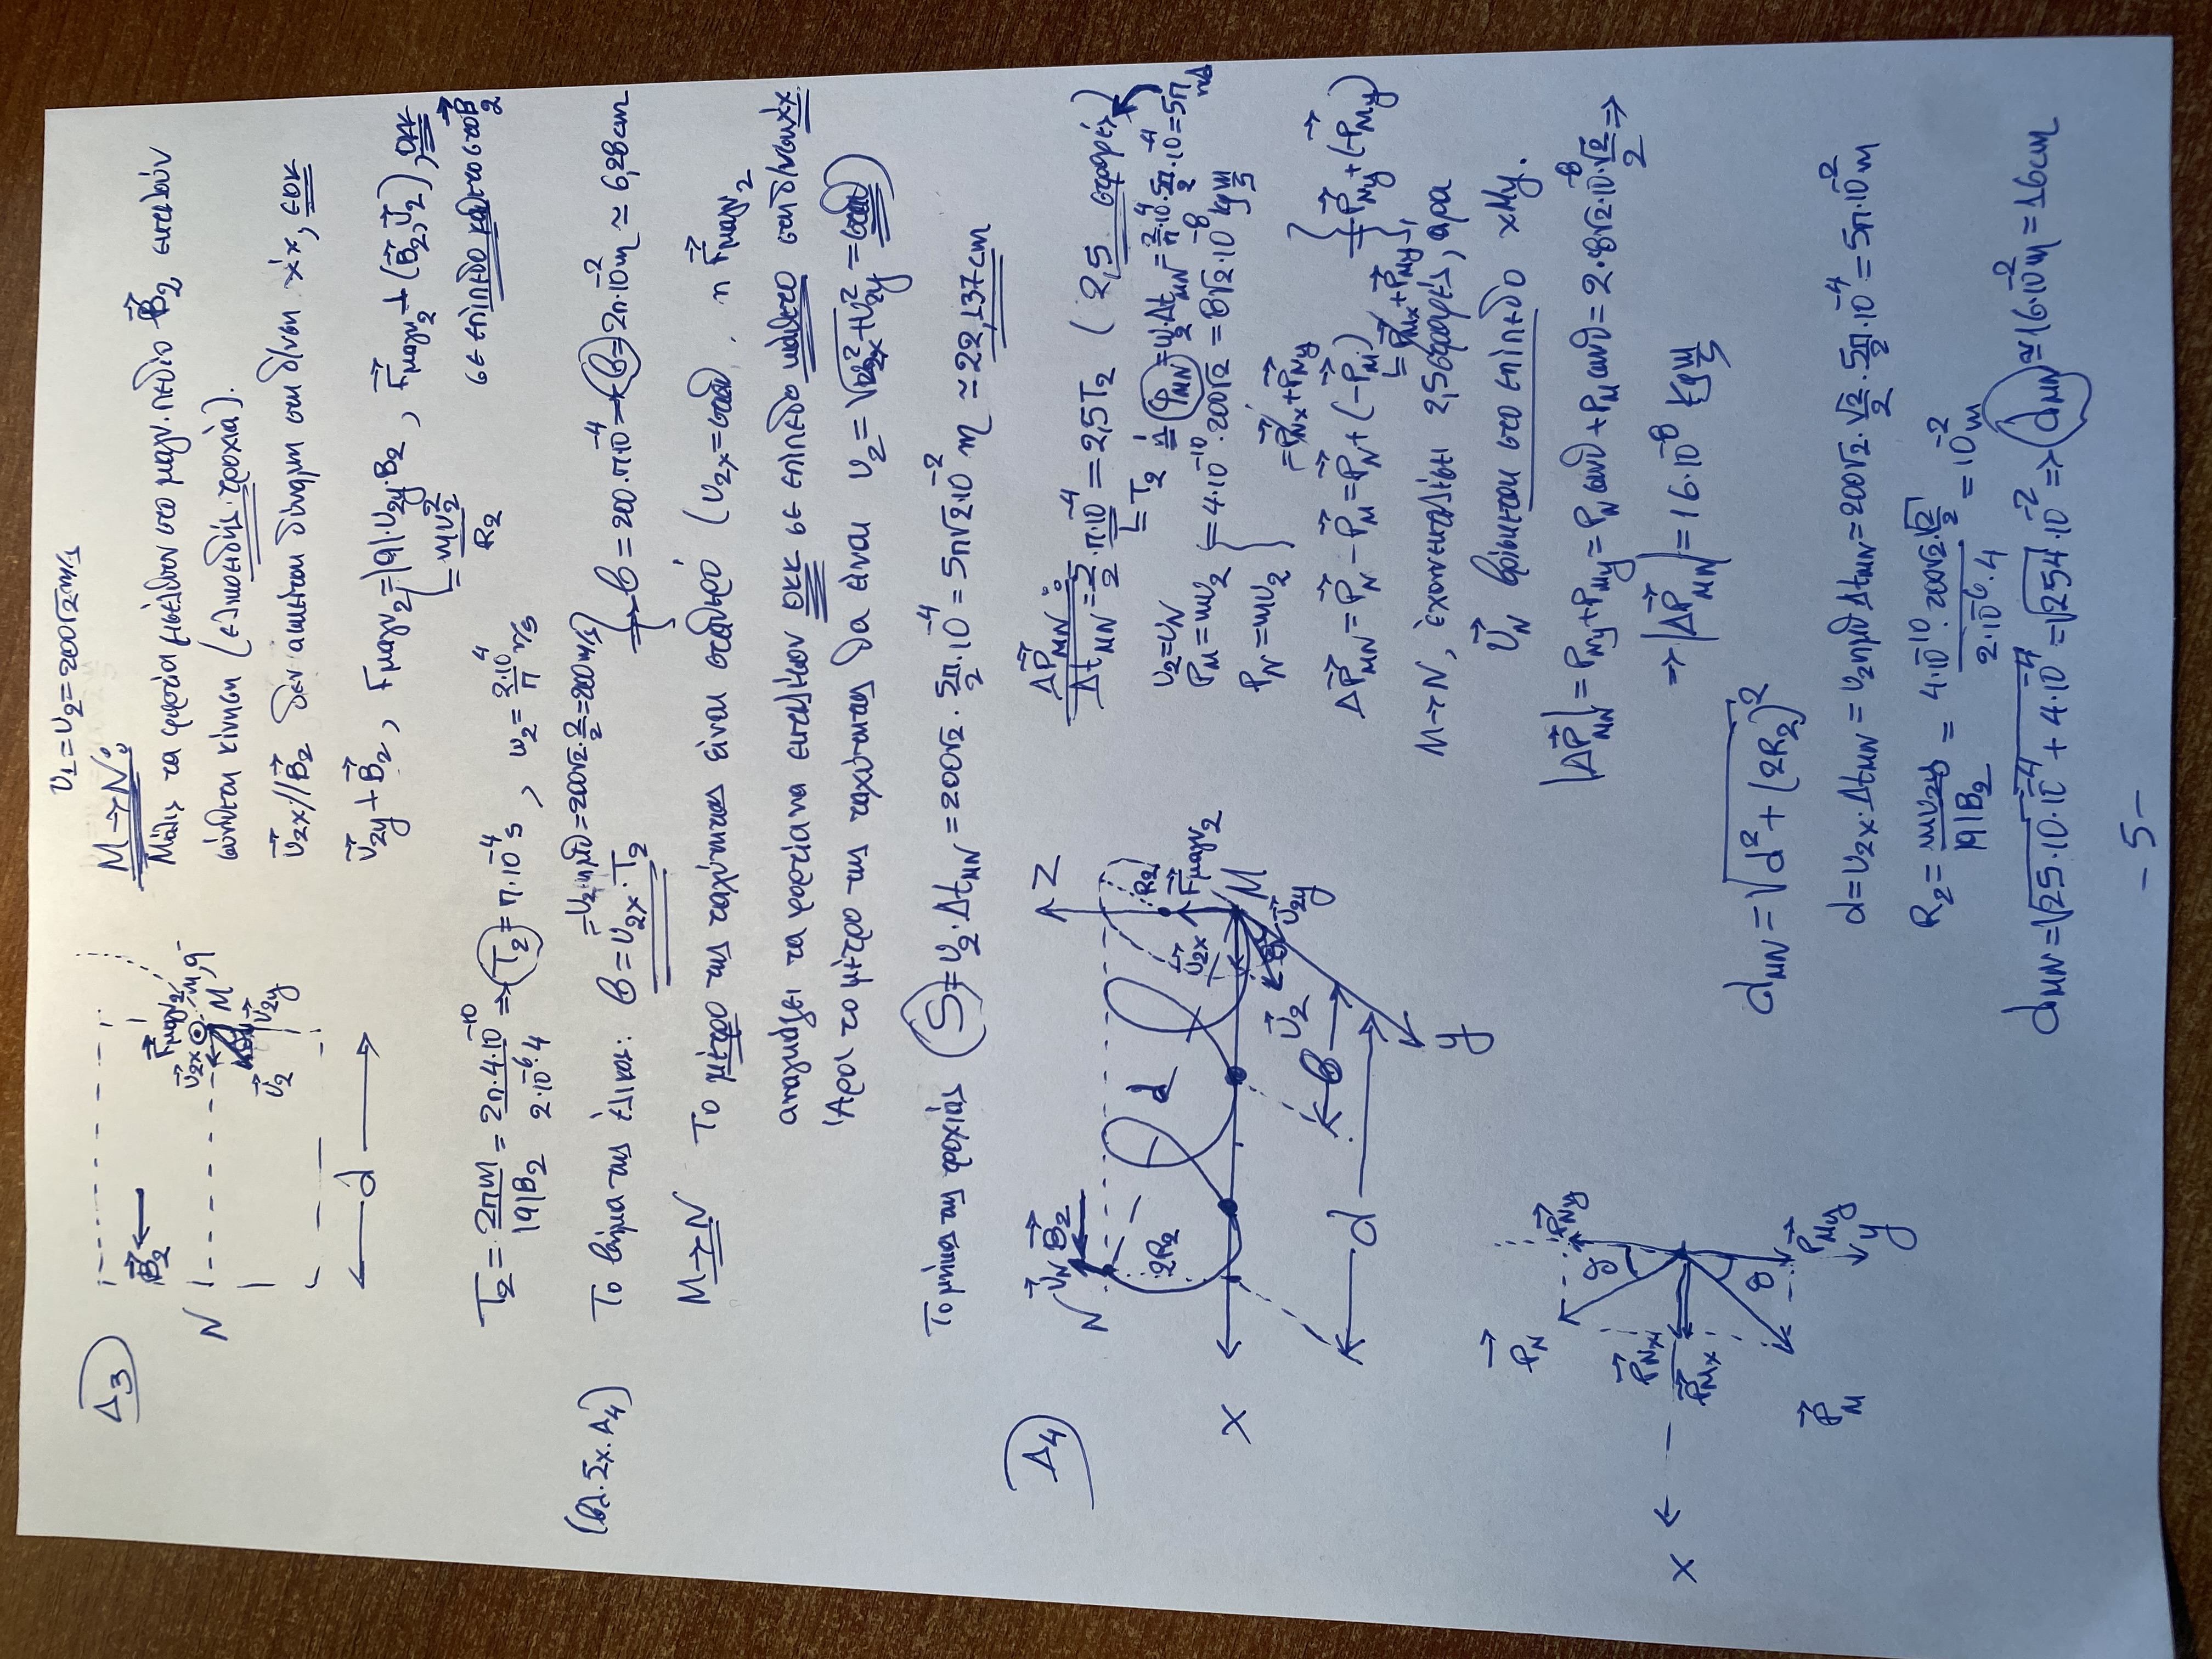 υ₁=υ₂=200√2 m/s
Δ3
B⃗₂
N
F⃗μαγν₂
υ⃗₂ₓ
m,q⁻
M
θ
υ⃗₂
υ⃗₂y
d
M→N:
Μόλις τα φορτία εισέλθουν στο μαγν. πεδίο B⃗₂ εκτελούν
σύνθετη κίνηση (ελικοειδής τροχιά).
υ⃗₂ₓ//B⃗₂ δεν ασκείται δύναμη στη δ/νση x'x, ΕΟΚ
υ⃗₂y⊥B⃗₂, Fμαγν₂=|q|·υ₂y·B₂, F⃗μαγν₂⊥(B⃗₂,υ⃗₂), ΟΚΚ
= mυ₂²/R₂ σε επίπεδο κάθετο στο B⃗₂
T₂ = 2πm/|q|B₂ = 2π·4·10⁻¹⁰/2·10⁻⁶·4 ⇒ T₂ = π·10⁻⁴ s, ω₂ = 2·10⁴/π r/s
=υ₂ημθ=200√2·2/2=200m/s
(βλ. Σχ. Δ4) Το βήμα της έλικας: β=υ₂ₓ·T₂ ⇒ β=200·π·10⁻⁴ → β=2π·10⁻² m ≃ 6,28cm
M→N Το μέτρο της ταχύτητας είναι σταθερό (υ₂ₓ=σταθ, η F⃗μαγν₂
αναγκάζει τα φορτία να εκτελέσουν ΟΚΚ σε επίπεδο κάθετο στη δ/νση x'x
Άρα το μέτρο της ταχύτητας θα είναι υ₂=√υ₂ₓ²+υ₂y² = σταθ)
Το μήκος της τροχιάς S=υ₂·Δtᴍɴ=200√2·5π/2·10⁻⁴=5π√2·10⁻² m ≃22,137cm
Δ4
N υ⃗ɴ B⃗₂
z
2R₂
d
R₂
υ⃗₂ₓ
F⃗μαγν₂
x
M
υ⃗₂
θ
υ⃗₂y
β
d
y
ΔP⃗ᴍɴ:
Δtᴍɴ=5/2·π·10⁻⁴=2,5T₂ (2,5 στροφές)
=T₂ ή φᴍɴ=ω₂·Δtᴍɴ=2/π·10⁴·5π/2·10⁻⁴=5π rad
υ₂=υɴ
Pᴍ=mυ₂
Pɴ=mυ₂
}=4·10⁻¹⁰·200√2=8√2·10⁻⁸ kg m/s
=P⃗ɴₓ+P⃗ɴy
ΔP⃗ᴍɴ=P⃗ɴ−P⃗ᴍ=P⃗ɴ+(−P⃗ᴍ) }=P⃗ɴy+(−P⃗ᴍy)
=P⃗ᴍₓ+P⃗ᴍy
M→N, έχουν εκτελέσει 2,5 στροφές, άρα
υ⃗ɴ βρίσκεται στο επίπεδο xMy.
P⃗ɴ
P⃗ɴy
θ
P⃗ɴₓ
x
P⃗ᴍₓ
θ
P⃗ᴍ
P⃗ᴍy
y
|ΔP⃗ᴍɴ|=Pɴy+Pᴍy=Pɴσυνθ+Pᴍσυνθ=2·8√2·10⁻⁸·√2/2 ⇒
⇒|ΔP⃗ᴍɴ|=16·10⁻⁸ kg m/s
dᴍɴ=√d²+(2R₂)²
d=υ₂ₓ·Δtᴍɴ=υ₂ημθΔtᴍɴ=200√2·√2/2·5π/2·10⁻⁴=5π·10⁻² m
R₂ = mυ₂y/|q|B₂ = 4·10⁻¹⁰·200√2·√2/2 / 2·10⁻⁶·4 = 10⁻² m
dᴍɴ=√25·10·10⁻⁴+4·10⁻⁴=√254·10⁻² ⇒ dᴍɴ≃16·10⁻² m=16cm
-5-